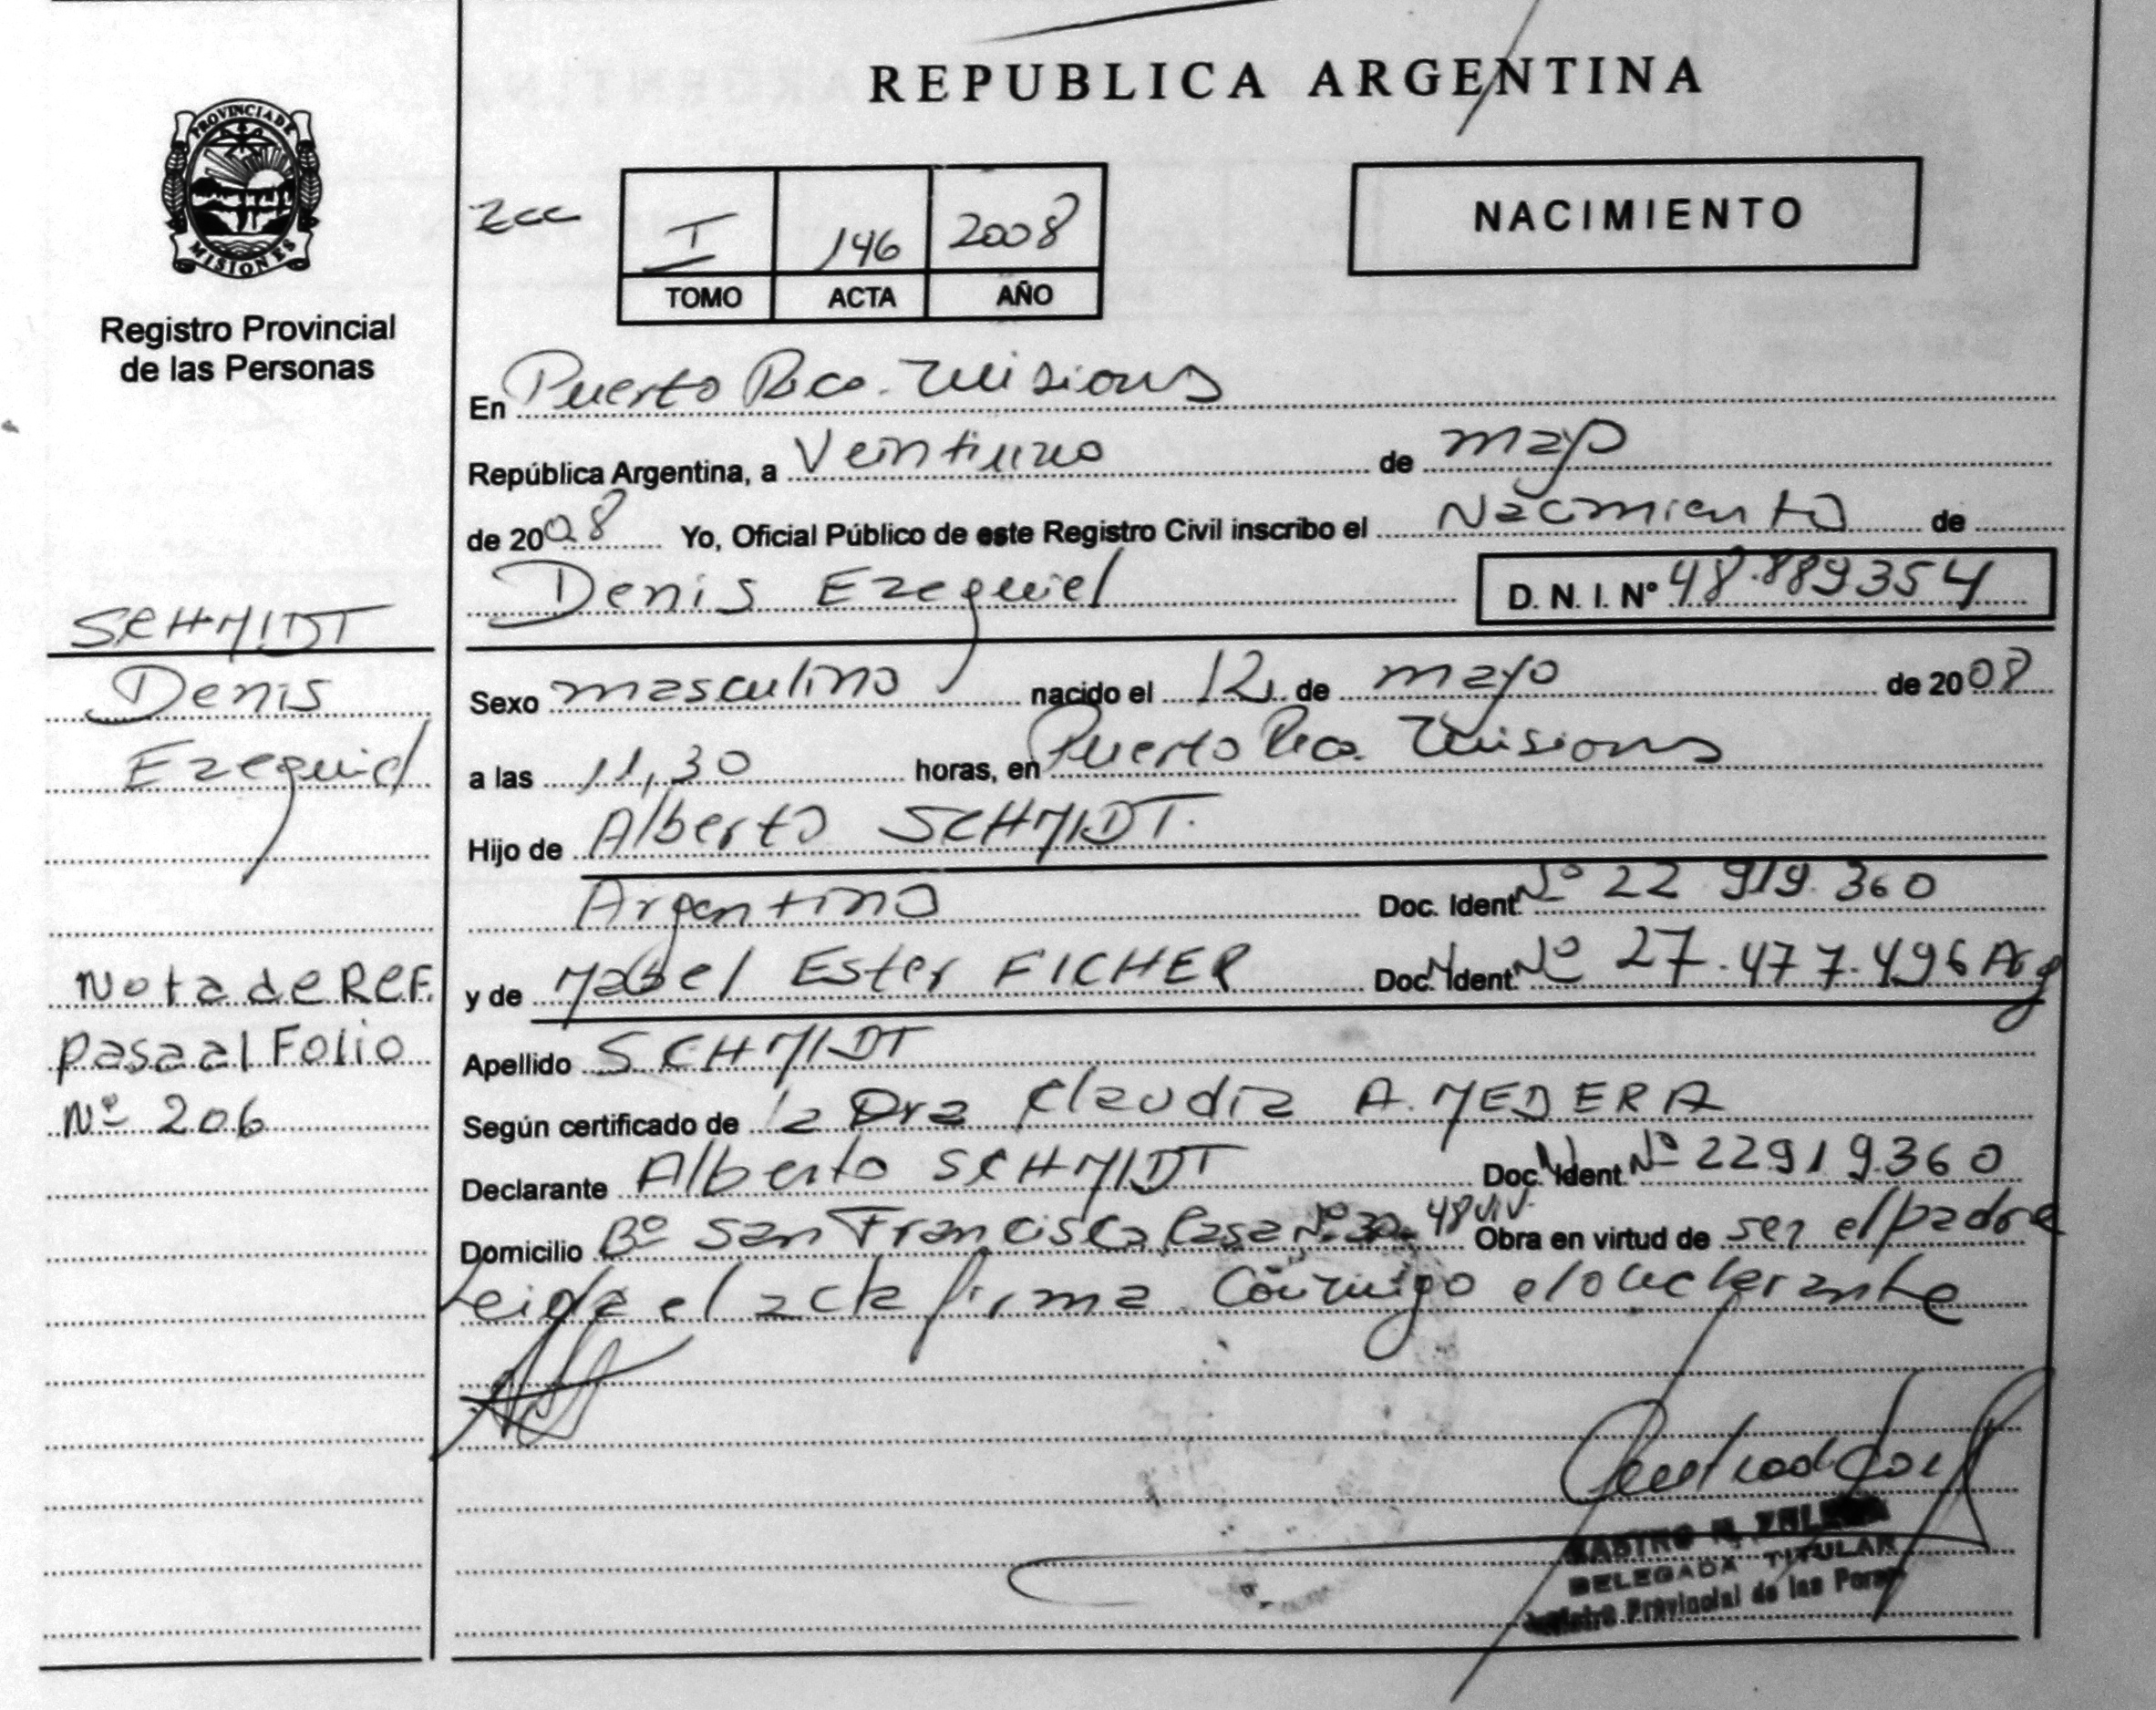 REPUBLICA ARGENTINA
PROVINCIA DE
MISIONES
Registro Provincial
de las Personas
I 146 2008
TOMO ACTA AÑO
NACIMIENTO
En Puerto Rico. Misiones
República Argentina, a Veintiuno de mayo
de 2008 Yo, Oficial Público de este Registro Civil inscribo el Nacimiento de
Denis Ezequiel D. N. I. Nº 48.889354
SCHMIDT
Denis
Ezequiel
Sexo masculino nacido el 12 de mayo de 2008
a las 11,30 horas, en Puerto Rico. Misiones
Hijo de Alberto SCHMIDT.
Argentino Doc. Ident. Nº 22 919.360
y de Mabel Ester FICHER Doc. Ident. Nº 27.477.496 Arg
Apellido SCHMIDT
Según certificado de la Dra Claudia A. MEDERA
Declarante Alberto SCHMIDT Doc. Ident. Nº 22919.360
Domicilio Bº San Francisco Casa Nº 30- 48 viv. Obra en virtud de ser el padre
Leida el acta firma Conmigo el declarante
Nota de REF.
pasa al Folio
Nº 206
DELEGADA TITULAR
Provincial de las